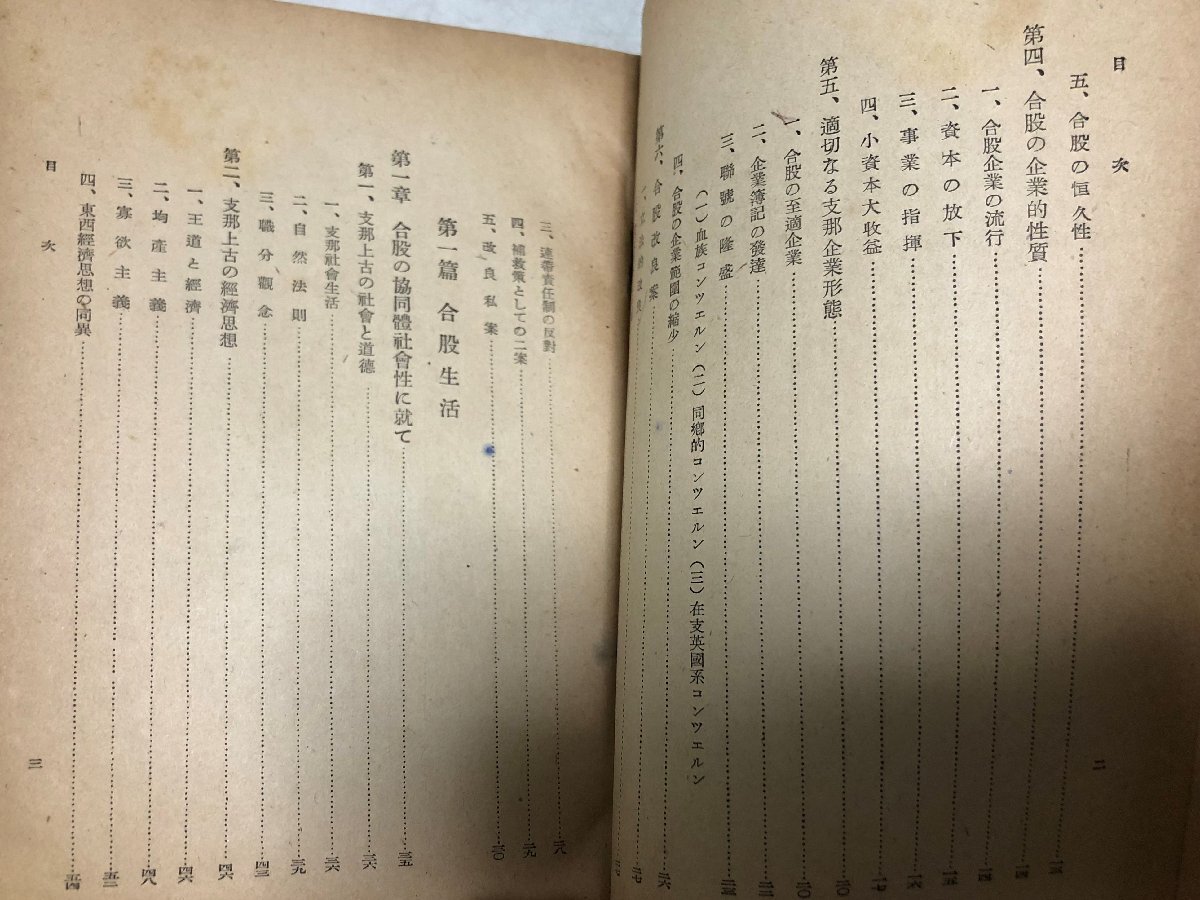 目次
五、合股の恒久性
第四、合股の企業的性質
一、合股企業の流行
二、資本の放下
三、事業の指揮
四、小資本大收益
第五、適切なる支那企業形態
一、合股の至適企業
二、企業簿記の發達
三、聯號の隆盛
(一)血族コンツエルン(二)同鄕的コンツエルン(三)在支英國系コンツエルン
四、合股の企業範圍の縮少
第六、合股改良案
二
三、連帶責任制の反對
四、補救策としての二案
五、改良私案
第一篇 合股生活
第一章 合股の協同體社會性に就て 三五
第一、支那上古の社會と道德 三六
一、支那社會生活 三六
二、自然法則 三九
三、職分觀念 四三
第二、支那上古の經濟思想 四六
一、王道と經濟 四六
二、均產主義 四八
三、寡欲主義 五二
四、東西經濟思想の同異 五四
目次
三